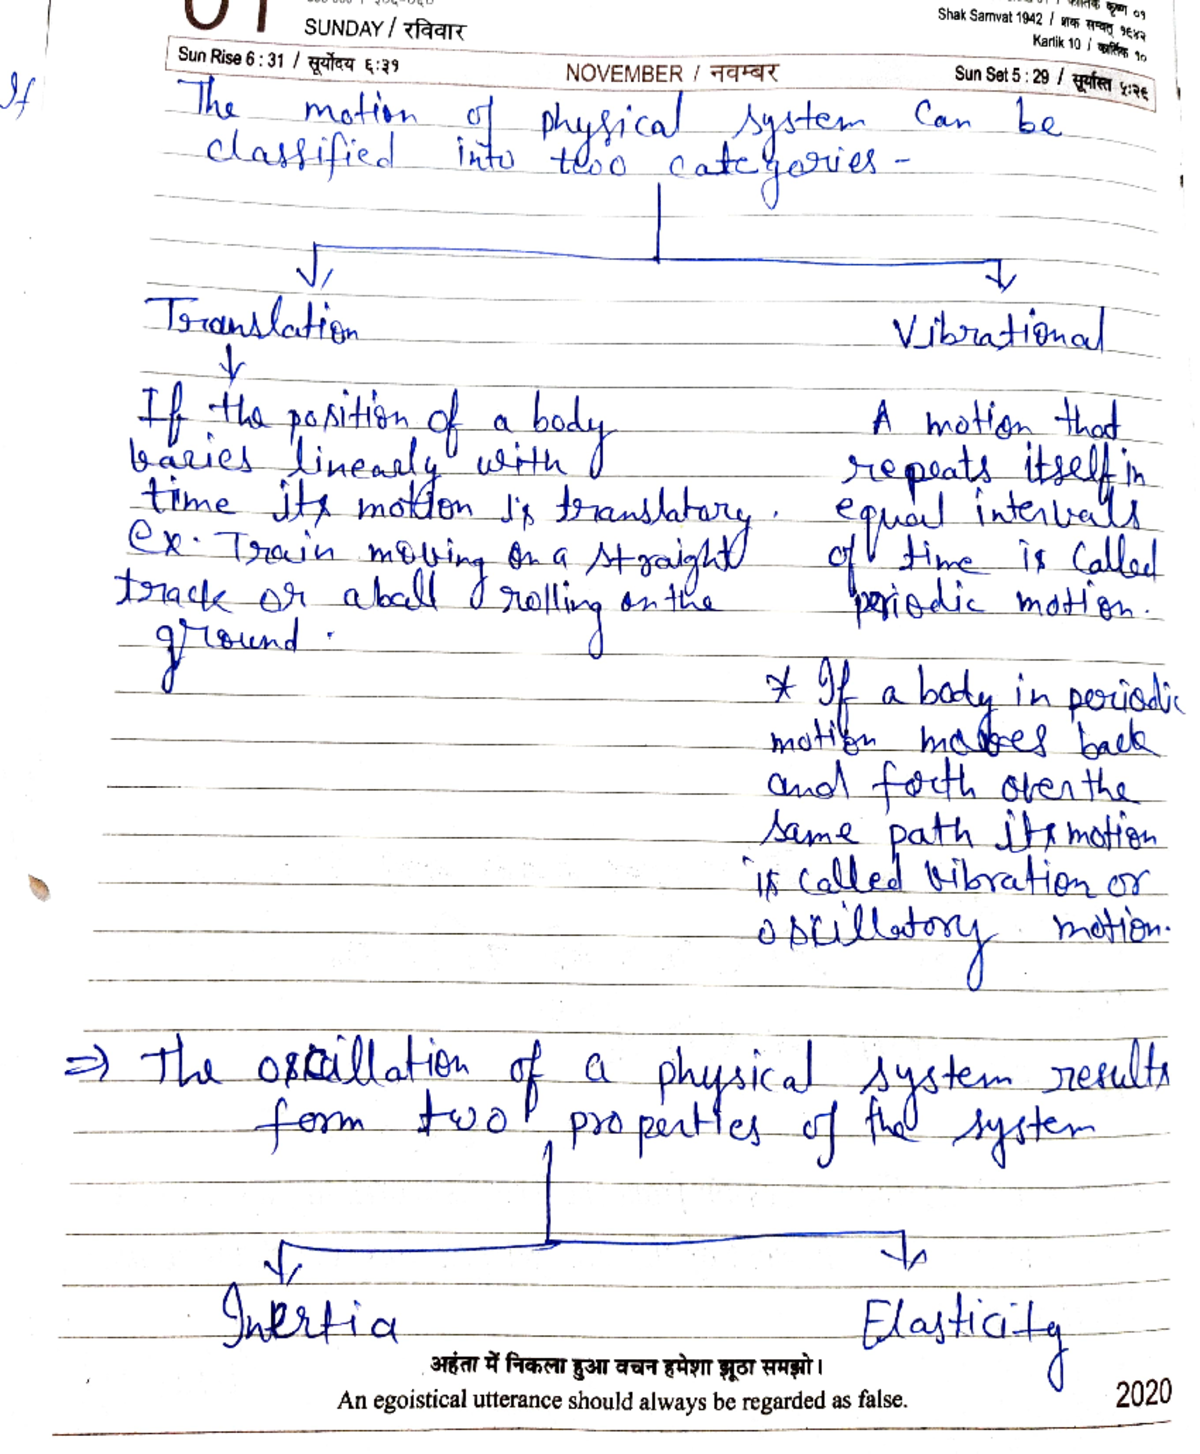 01
SUNDAY / रविवार
कार्तिक कृष्ण ०१
Shak Samvat 1942 / शक सम्वत् १९४२
Kartik 10 / कार्तिक १०
Sun Rise 6 : 31 / सूर्योदय ६:३१
NOVEMBER / नवम्बर
Sun Set 5 : 29 / सूर्यास्त ५:२९
If
The motion of physical system can be
classified into two categories -
Translation
Vibrational
If the position of a body
varies linearly with
time its motion is translatary.
ex. Train moving on a straight
track or a ball rolling on the
ground.
A motion that
repeats itself in
equal intervals
of time is called
periodic motion.
* If a body in periodic
motion moves back
and forth over the
same path its motion
is called vibration or
oscillatory motion.
⇒ The oscillation of a physical system results
form two properties of the system
Inertia
Elasticity
अहंता में निकला हुआ वचन हमेशा झूठा समझो।
An egoistical utterance should always be regarded as false.
2020